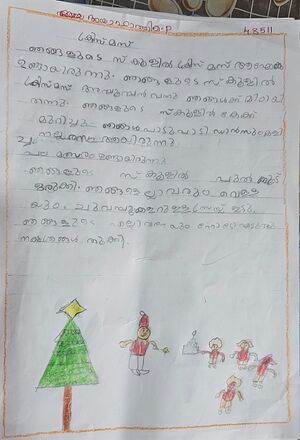 ക്രിസ്മസ്
ഞങ്ങളുടെ സ്കൂളിൽ ക്രിസ്മസ് ആഘോഷം
ഉണ്ടായിരുന്നു. ഞങ്ങളുടെ സ്കൂളിൽ
ക്രിസ്മസ് അപ്പൂപ്പൻ വന്നു ഞങ്ങൾക്ക് മിഠായി
തന്നു. ഞങ്ങളുടെ സ്കൂളിൽ കേക്ക്
മുറിച്ചു. ഞങ്ങൾ പാട്ടുപാടി ഡാൻസുകളി
നല്ല രസം ആയിരുന്നു.
പല മത്സരം ഉണ്ടായിരുന്നു
ഞങ്ങളുടെ സ്കൂളിൽ പുൽക്കൂട്
ഒരുക്കി. ഞങ്ങളെല്ലാവരും വെള്ള
യും ചുവപ്പുകളറുള്ള ഡ്രസ്സ് ഇട്ടു.
ഞങ്ങളുടെ
നക്ഷത്രങ്ങൾ തൂക്കി.